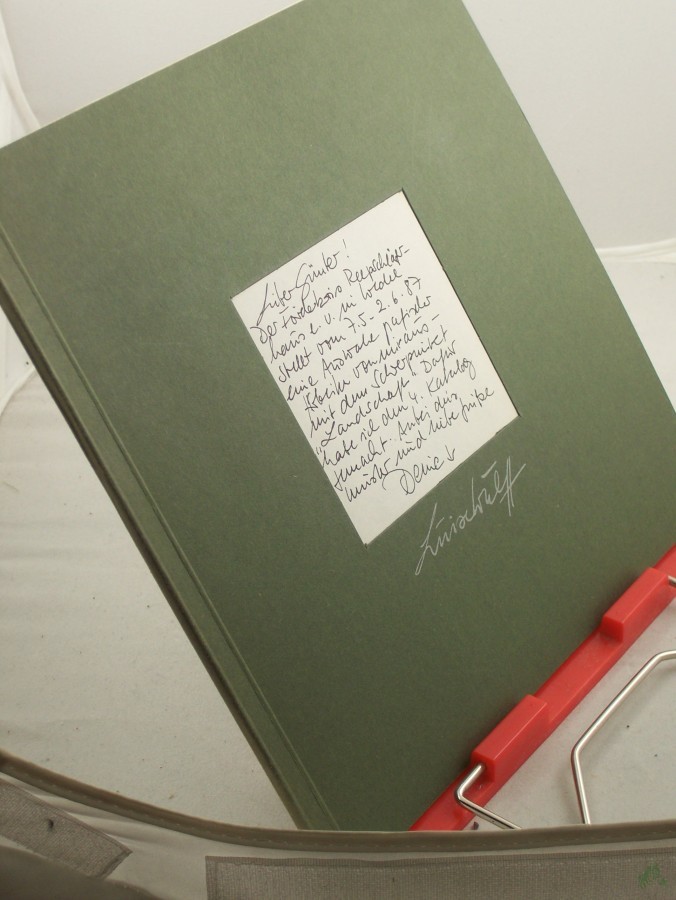 Lieber Günter!
Der Förderkreis Reepschläger-
haus e.V. in Wedel
stellt vom 7.5. - 2.6.87
eine Auswahl grafischer
Blätter von mir aus -
mit dem Schwerpunkt
"Landschaft". Dafür
habe ich den 4. Katalog
gemacht. Anbei das
Muster und liebe Grüße
Deine